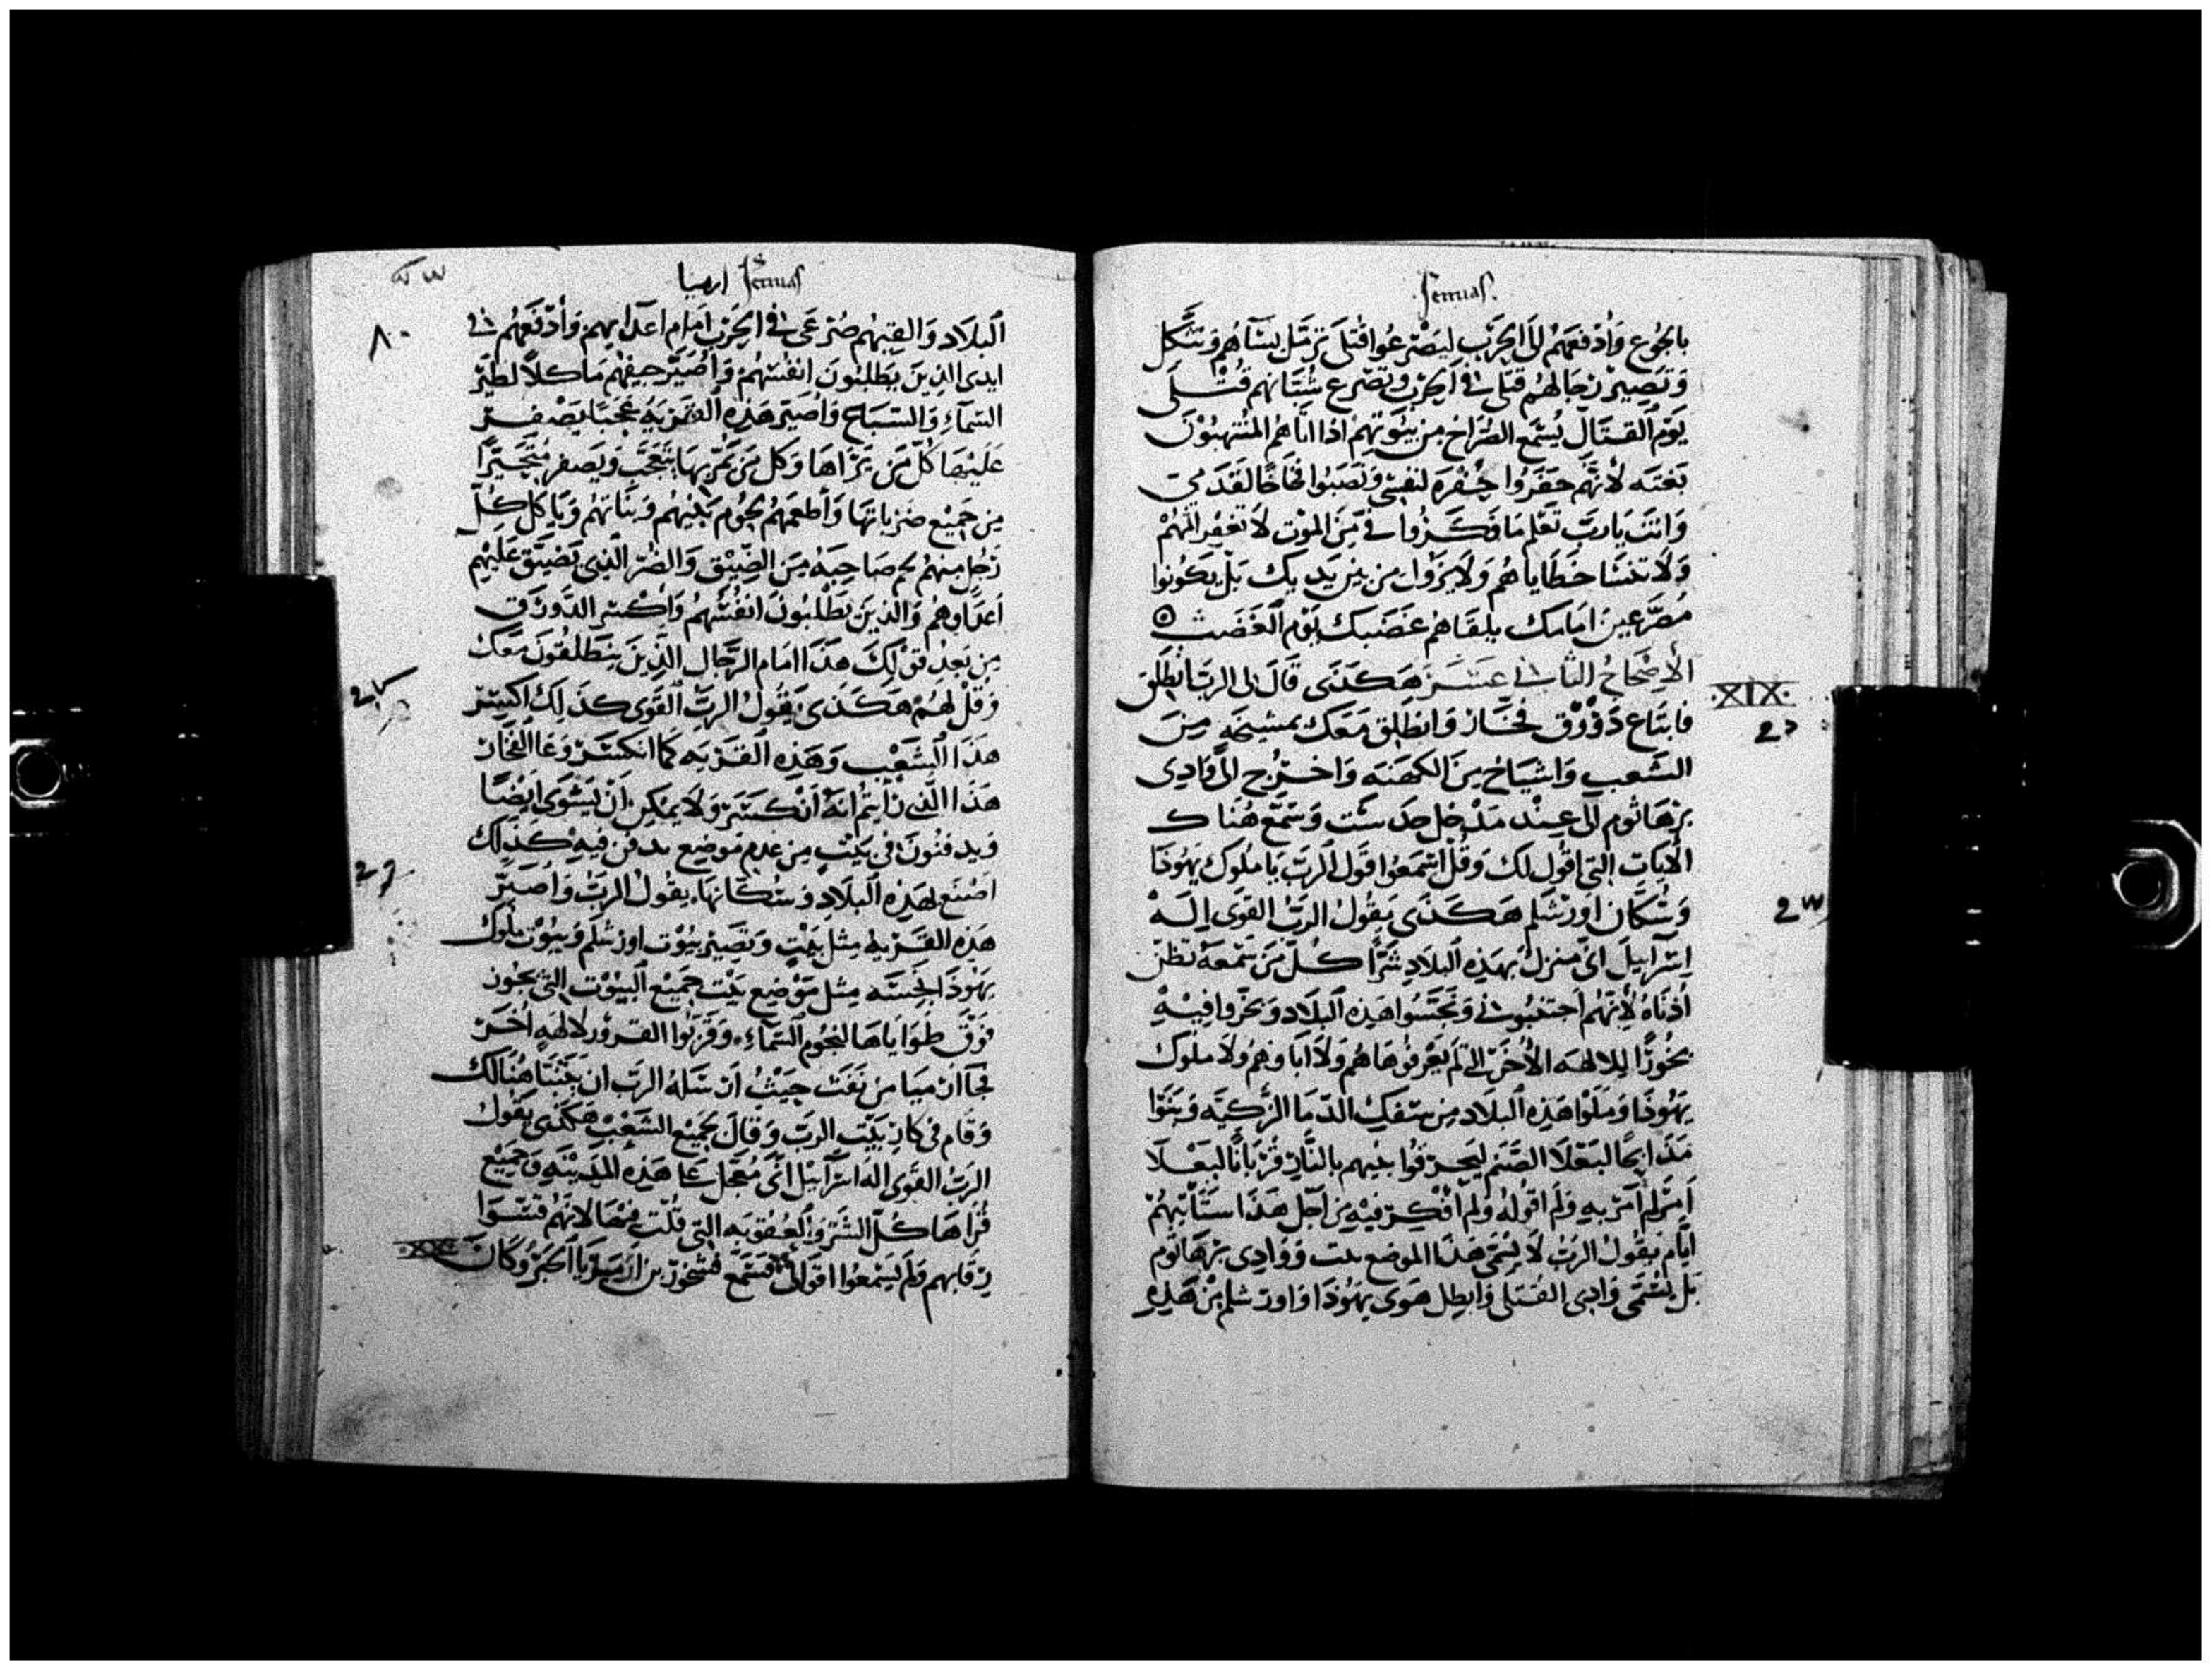 Jermias.
بالجوع وادفعهم الى الحرب ليصرعوا قتلى ترمل نساهم وتثكل
وتصير رجالهم قتلى في الحرب وتصرع شبانهم قتلى
يوم القتال يسمع الصراخ من بيوتهم اذا اتاهم المنتهبون
بغته لانهم حفروا حفره لنفسي ونصبوا فخاخا لقدمي
وانت يا رب تعلم ما فكروا في من الموت لا تغفر اثمهم
ولا تنسا خطاياهم ولا يزول من بين يديك بل يكونوا
مصرعين امامك يلقاهم غضبك يوم الغضب
الاصحاح الثاني عشر هكذى قال لي الرب انطلق
XIX
فابتاع دورق فخار وانطلق معك بمشيخه من
الشعب واشياخ من الكهنه واخرج الى وادى
برهانوم الى عند مدخل وسمع هناك
الايات التي اقول لك وقل اسمعوا قول الرب يا ملوك يهوذا
وسكان اورشلم هكذى يقول الرب القوى اله
اسراييل اني منزل بهذه البلاد شرا كل من سمعه تطن
اذناه لانهم اجتنبوني ونجسوا هذه البلاد وبخروا فيه
بخورا للالهه الاخر التي لم يعرفوها هم ولا اباوهم ولا ملوك
يهوذا وملوا هذه البلاد من سفك الدما الزكيه وبنوا
مذابحا لبعلا الصنم ليحرقوا بنيهم بالنار قربانا لبعلا
امر لم امر به ولم اقوله ولم افكر فيه من اجل هذا ستاتيهم
ايام يقول الرب لا يسمى هذا الموضع ووادى برهانوم
بل يسمى وادى القتلى وابطل هوى يهوذا واورشلم من هذه
ارميا Jermias
٨٠
البلاد والقيهم صرعى في الحرب امام اعدايهم وادفعهم في
ايدى الذين يطلبون انفسهم واصير جيفهم ماكلا لطير
السماء والسباع واصير هذه القريه عجبا يصفر
عليها كل من يراها وكل من يمر بها يتعجب ويصفر متحيرا
من جميع ضرباتها واطعمهم لحوم بنيهم وبناتهم وياكل كل
رجل منهم لحم صاحبه من الضيق والضر الذى يضيق عليهم
اعداوهم والذين يطلبون انفسهم واكسر الدورق
من بعد قولك هذا امام الرجال الذين ينطلقون معك
وقل لهم هكذى يقول الرب القوى كذلك اكسر
هذا الشعب وهذه القريه كما انكسر وعا الفخار
هذا الذى رايتم انه انكسر ولا يمكن ان يسوى ايضا
ويدفنون في بيت من عدم موضع يدفن فيه كذلك
اصنع لهذه البلاد وسكانها يقول الرب واصير
هذه القريه مثل بيت وتصير بيوت اورشلم وبيوت ملوك
يهوذا نجسه مثل موضع بيت جميع البيوت التي بخور
فوق طواياها لنجوم السماء وقربوا القرور لالهه اخر
فجا ارميا من نفت حيث ارسله الرب ان يتنبا هنالك
وقام في كار بيت الرب وقال لجميع الشعب هكذى يقول
الرب القوى اله اسراييل اني معجل على هذه المدينه وجميع
قراها كل الشر والعقوبه التي قلت عنها لانهم قسوا
رقابهم ولم يسمعوا اقوالي فسمع فسخور بن امير يا الحبر وكان
XX